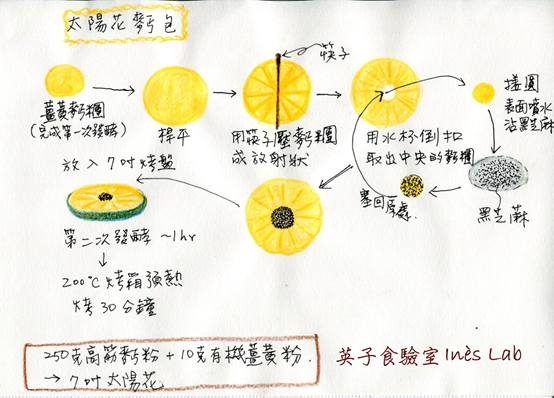 太陽花麵包
筷子
薑黃麵糰
(完成第一次發酵)
桿平
用筷子壓麵糰
成放射狀
用水杯倒扣
取出中央的麵糰
搓圓
表面噴水
沾黑芝麻
黑芝麻
塞回原處
放入7吋烤盤
第二次發酵 ~1hr
200°C 烤箱預熱
烤30分鐘
250克高筋麵粉 + 10克有機薑黃粉.
→ 7吋太陽花
英子食驗室 Inès Lab